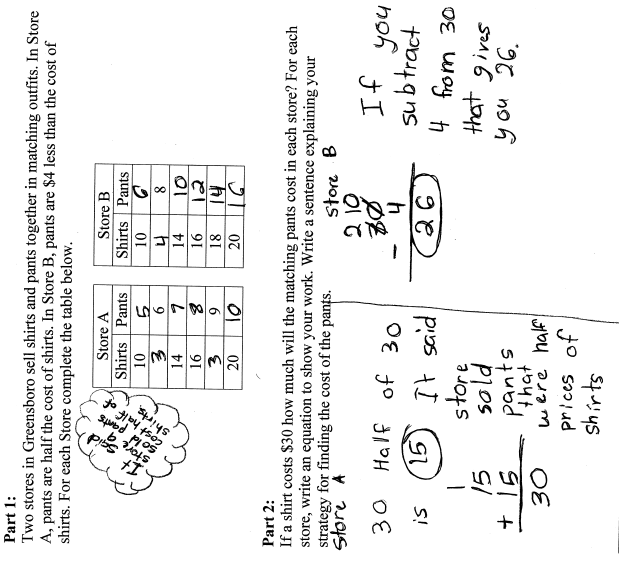 Part 1:
Two stores in Greensboro sell shirts and pants together in matching outfits. In Store
A, pants are half the cost of shirts. In Store B, pants are $4 less than the cost of
shirts. For each Store complete the table below.
It said
store a
sold pants
cost half of
shirts
Store A
Shirts Pants
10 5
3 6
14 7
16 8
3 9
20 10
Store B
Shirts Pants
10 6
4 8
14 10
16 12
18 14
20 16
Part 2:
If a shirt costs $30 how much will the matching pants cost in each store? For each
store, write an equation to show your work. Write a sentence explaining your
strategy for finding the cost of the pants.
Store A
30 Half of 30
is 15 It said
store
sold
pants
that
were half
prices of
shirts
1
15
+ 15
30
Store B
2 10
30
- 4
26
If you
subtract
4 from 30
that gives
you 26.